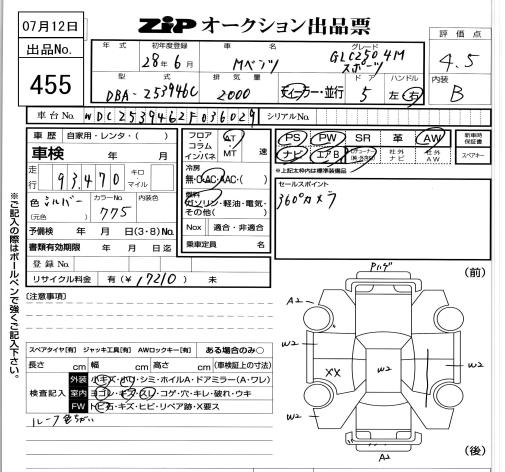 07月12日
出品No.
455
ZIP オークション出品票
評価点
4.5
内装
B
年式 初年度登録 車名 グレード
28年6月 Mベンツ GLC250 4M
スポーツ
型式 排気量 ドア ハンドル
DBA-253946C 2000 ディーラー・並行 5 左・右
車台No. WDC2539462F036029 シリアルNo.
車歴 自家用・レンタ・( )
車検 年 月
走行 93,470 キロ マイル
色 シルバー カラーNo. 775 内装色
(元色)
予備検 年 月 日(3・8)No.
書類有効期限 年 月 日迄
登録No.
リサイクル料金 有(¥17210) 未
フロア コラム インパネ AT・MT 速
冷房
無・C・AAC・( )
燃料
ガソリン・軽油・電気・その他( )
Nox 適合・非適合
乗車定員 名
PS PW SR 革 AW
ナビ エアB 社外ナビ 社外AW
新車時保証書
スペアキー
※上記太枠内は標準装備品
セールスポイント
360°カメラ
[注意事項]
スペアタイヤ[有] ジャッキ工具[有] AWロックキー[有] ある場合のみ○
長さ cm 幅 cm 高さ cm (車検証上の寸法)
検査記入
外装 小キズ・小リ・シミ・ホイルA・ドアミラー(A・ワレ)
室内 ヨゴレ・キズ・スレ・コゲ・穴・キレ・破れ・ウキ
FW トビ石・キズ・ヒビ・リペア跡・X要ス
ルーフ色ちがい
※ご記入の際はボールペンで強くご記入下さい。
(前)
A2
W2
XX
W2
W2
W2
A2
(後)